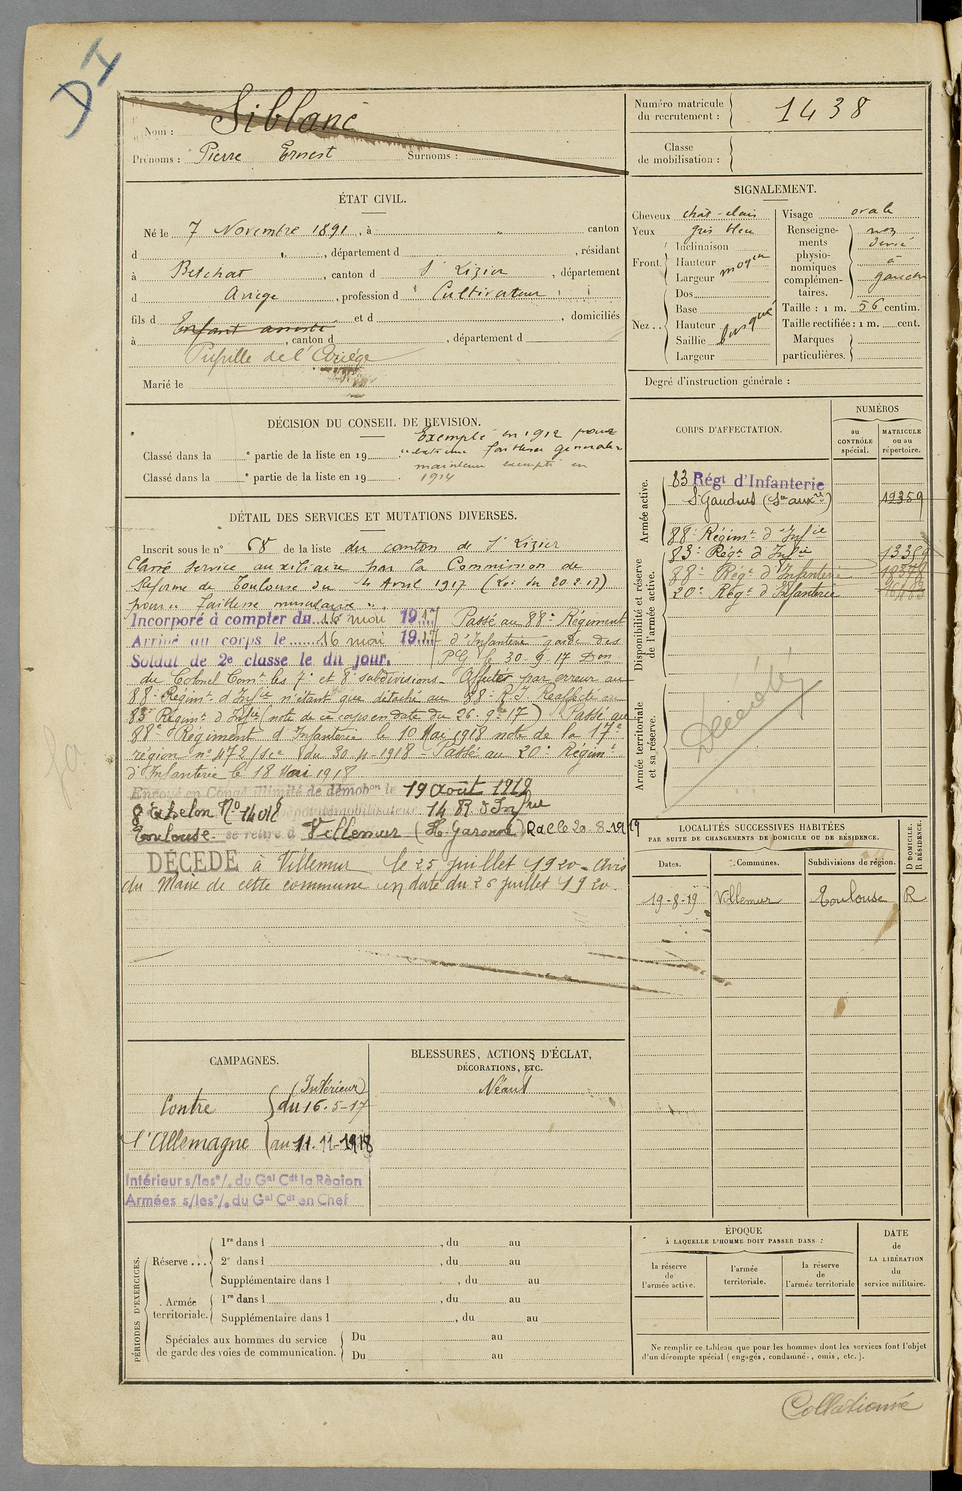 DI
Nom : Siblanc
Prénoms : Pierre Ernest Surnoms :
Numéro matricule
du recrutement : 1438
Classe
de mobilisation :
ÉTAT CIVIL.
Né le 7 Novembre 1891, à " canton
d " , département d , résidant
à Betchat , canton d St Lizier , département
d Ariège , profession d Cultivateur
fils d Enfant assisté et d , domiciliés
à , canton d , département d
Pupille de l'Ariège
Marié le
SIGNALEMENT.
Cheveux chat-clair
Yeux gris bleu
Front Inclinaison
Hauteur
Largeur moyen
Nez Dos
Base
Hauteur
Saillie busqué
Largeur
Visage ovale
Renseigne-
ments
physio-
nomiques
complémen-
taires. nez
dévié
à
gauche
Taille : 1 m. 56 centim.
Taille rectifiée : 1 m. cent.
Marques
particulières.
Degré d'instruction générale :
DÉCISION DU CONSEIL DE REVISION.
Exempté en 1912 pour
Classé dans la e partie de la liste en 19 faiblesse générale
maintenu exempté en
Classé dans la e partie de la liste en 19 1914
DÉTAIL DES SERVICES ET MUTATIONS DIVERSES.
Inscrit sous le n° 68 de la liste du canton de St Lizier
Classé service auxiliaire par la Commission de
Réforme de Toulouse du 4 Avril 1917 (Loi du 20.2.17)
pour faiblesse musculaire
Incorporé à compter du 16 mai 1917 Passé au 88e Régiment
Arrivé au corps le 16 mai 1917 d'Infanterie garde des
Soldat de 2e classe le dit jour. PG le 30-9-17 Don
du Colonel Comt les 7e et 8e subdivisions - Affecté par erreur au
88e Régimt d'Infie n'étant que détaché au 88e R.I. Réaffecté au
83e Régimt d'Infie (note de ce corps en date du 26-9bre 17) Passé au
88e Régiment d'Infanterie le 10 Mai 1918 note de la 17e
région n° 478/sc du 30-4-1918 - Passé au 20e Régimt
d'Infanterie le 18 Mai 1918
Envoyé en Congé illimité de démobon le 19 août 1919
8e échelon N° dépôt démobilisateur 14 R d'Infrie
Toulouse se retire à Villemur (Hte Garonne) RdCle 20-8-1919
DÉCÉDÉ à Villemur le 25 juillet 1920 - Avis
du Maire de cette commune en date du 26 juillet 1920.
CORPS D'AFFECTATION.
NUMÉROS
au
CONTRÔLE
spécial.
MATRICULE
ou au
répertoire.
Armée active.
83 Régt d'Infanterie
St Gaudens (Son auxre) 19359
Disponibilité et réserve
de l'armée active.
88e Régimt d'Infie
83e Régt d'Infie
88e Régt d'Infanterie
20e Régt d'Infanterie
Armée territoriale
et sa réserve.
Décédé
LOCALITÉS SUCCESSIVES HABITÉES
PAR SUITE DE CHANGEMENTS DE DOMICILE OU DE RÉSIDENCE.
Dates. Communes. Subdivisions de région. D DOMICILE. R RÉSIDENCE.
19-8-19 Villemur Toulouse R
CAMPAGNES.
Contre
l'Allemagne
(Intérieur)
du 16.5-17
au 11.11-1918
Intérieur s/les o/. du Gal Cdt la Région
Armées s/les o/. du Gal Cdt en Chef
BLESSURES, ACTIONS D'ÉCLAT,
DÉCORATIONS, ETC.
Néant
PÉRIODES D'EXERCICES.
Réserve 1re dans l , du au
2e dans l , du au
Supplémentaire dans l , du au
Armée
territoriale. 1re dans l , du au
Supplémentaire dans l , du au
Spéciales aux hommes du service
de garde des voies de communication. Du au
Du au
ÉPOQUE
À LAQUELLE L'HOMME DOIT PASSER DANS :
la réserve
de
l'armée active.
l'armée
territoriale.
la réserve
de
l'armée territoriale
DATE
de
LA LIBÉRATION
du
service militaire.
Ne remplir ce tableau que pour les hommes dont les services font l'objet
d'un décompte spécial (engagés, condamnés, omis, etc.).
Collationné